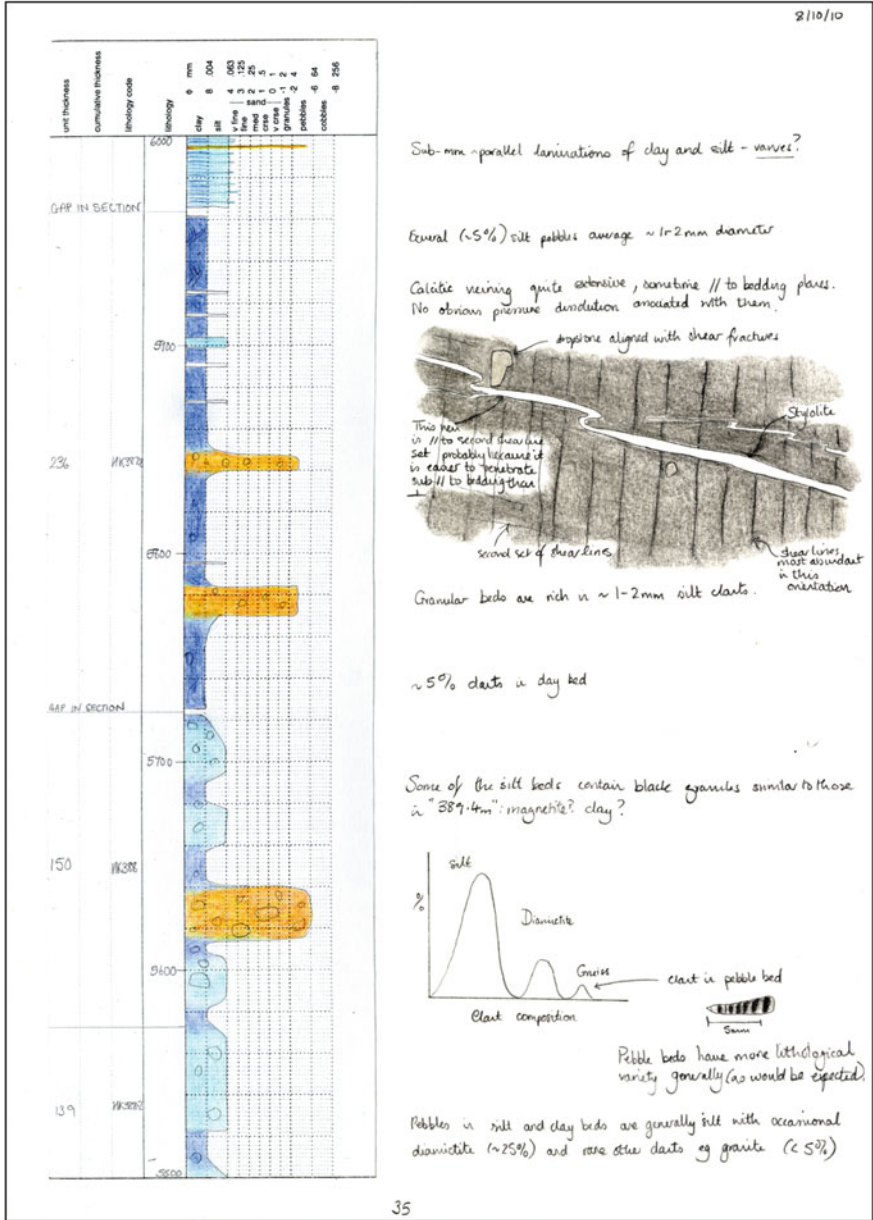 8/10/10
unit thickness
cumulative thickness
lithology code
lithology
φ mm
clay 8 .004
silt
4 .063
v fine 3 .125
fine 2 .25
med 1 .5
crse 0 1
v crse -1 2
granules -2 4
sand
pebbles -6 64
cobbles -8 256
6000
GAP IN SECTION
236
150
GAP IN SECTION
5700
5600
139
Sub-mm parallel laminations of clay and silt - varves?
Several (~5%) silt pebbles average ~1-2mm diameter
Calcitic veining quite extensive, sometime // to bedding planes.
No obvious pressure dissolution associated with them.
dropstone aligned with shear fractures
Stylolite
This vein
is // to second shear line
set, probably because it
is easier to penetrate
sub // to bedding than
⊥
second set of shear lines
shear lines
most abundant
in this
orientation
Granular beds are rich in ~1-2mm silt clasts.
~5% clasts in clay bed
Some of the silt beds contain black granules similar to those
in "389.4m": magnetite? clay?
silt
%
Diamictite
Gneiss
clast in pebble bed
Clast composition
5mm
Pebble beds have more lithological
variety generally (as would be expected).
Pebbles in silt and clay beds are generally silt with occasional
diamictite (~25%) and rare other clasts eg granite (<5%)
35